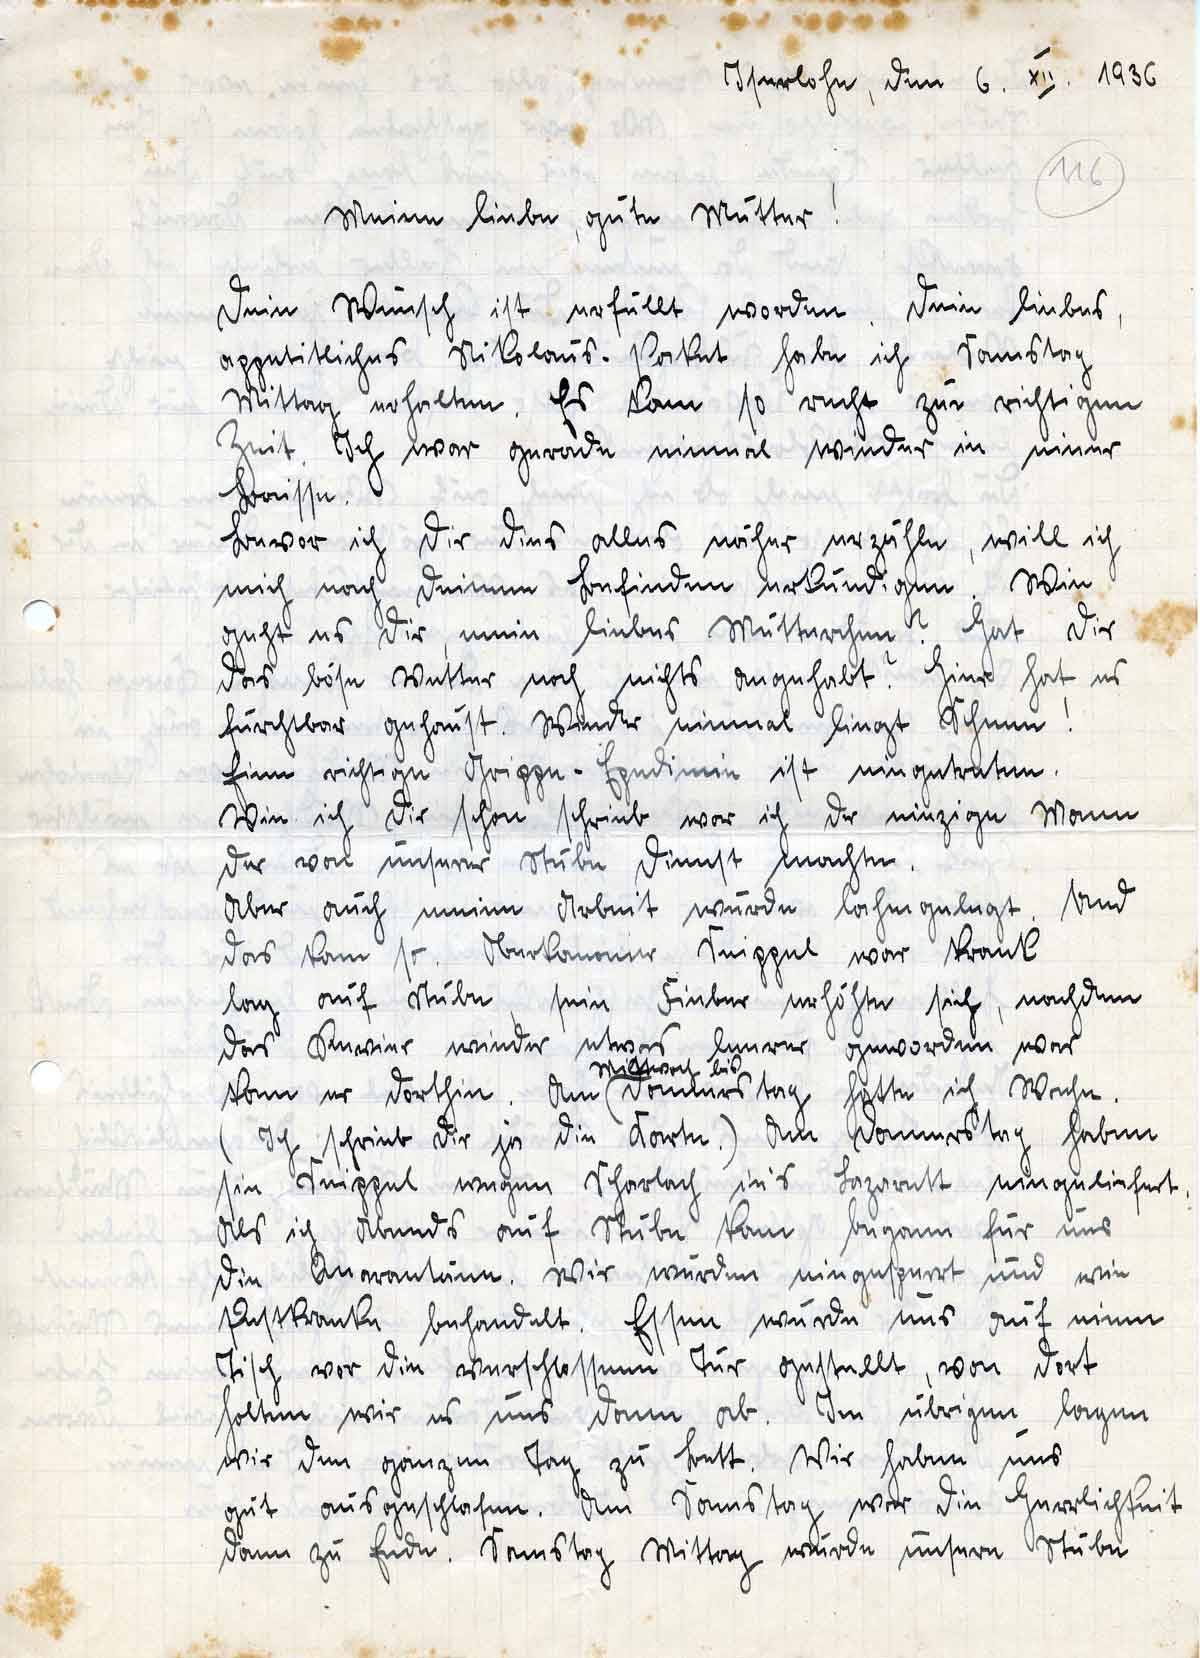 Iserlohn, den 6. XII. 1936
116
Meine liebe, gute Mutter!
Dein Wunsch ist erfüllt worden. Dein liebes,
appetitliches Nikolaus-Paket habe ich Samstag
Mittag erhalten. Es kam so recht zur richtigen
Zeit. Ich war gerade einmal wieder in einer
Braisse.
Bevor ich Dir dies alles näher erzähle, will ich
mich nach Deinem Befinden erkundigen. Wie
geht es Dir, mein liebes Mütterchen? Hat Dir
das böse Wetter noch nichts angehabt? Hier hat es
furchtbar gehaust. Wieder einmal liegt Schnee!
Eine richtige Grippe-Epedimie ist eingetreten.
Wie ich Dir schon schrieb war ich der einzige Mann
der von unserer Stube Dienst machte.
Aber auch meine Arbeit wurde lahmgelegt. Und
das kam so. Oberkanonier Seippel war krank
lag auf Stube, sein Fieber erhöhte sich, nachdem
das Revier wieder etwas leerer geworden war
kam er dorthin. Am (Mittwoch bis Donnerstag hatte ich Wache.
(Ich schrieb Dir ja die Karte.) Am Donnerstag haben
sie Seippel wegen Scharlach in's Lazarett eingeliefert.
Als ich Abends auf Stube kam begann für uns
die Quarantäne. Wir wurden eingesperrt und wie
Pestkranke behandelt. Essen wurde uns auf einen
Tisch vor die verschlossene Tür gestellt, von dort
holten wir es uns dann ab. Im übrigen lagen
wir den ganzen Tag zu Bett. Wir haben uns
gut ausgeschlafen. Am Samstag war die Herrlichkeit
dann zu Ende. Samstag Mittag wurde unsere Stube